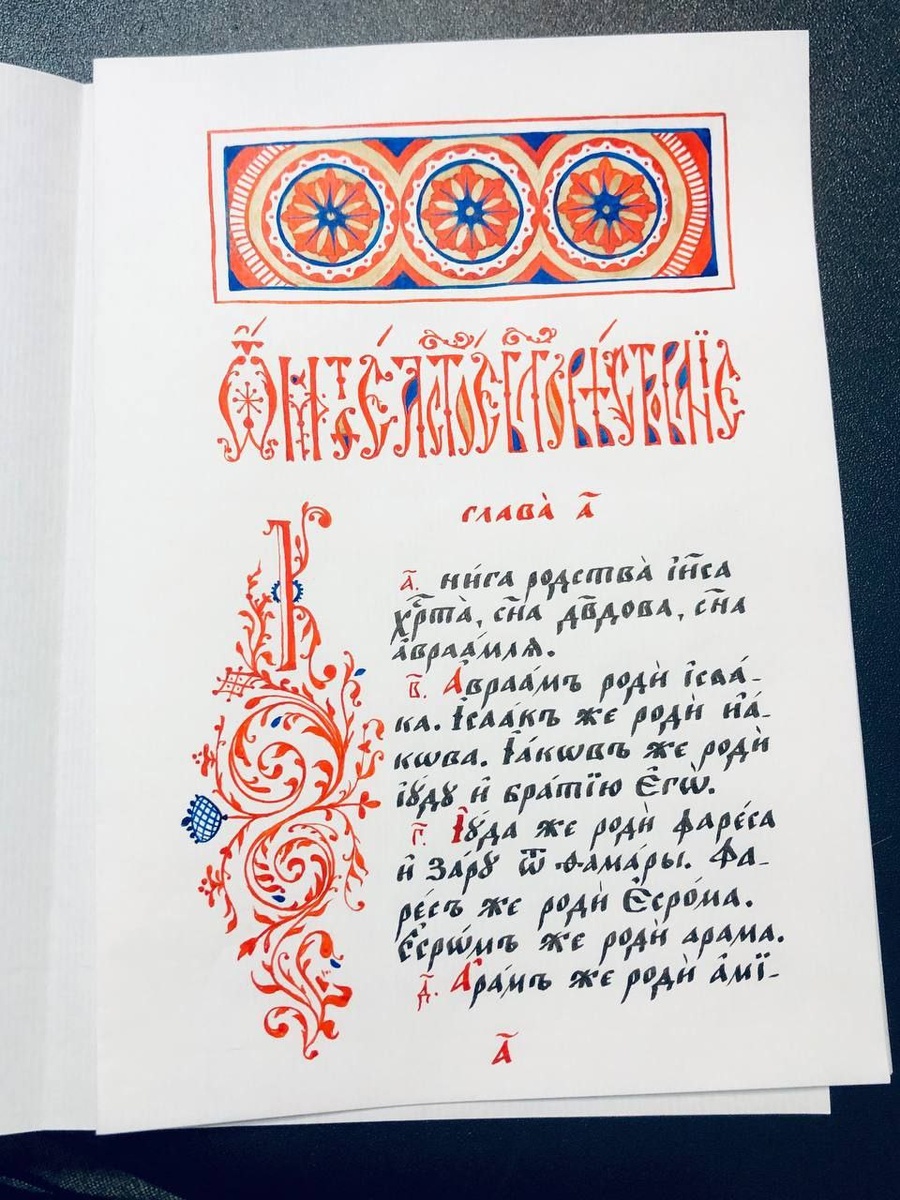 Ѿ МАТѲЕ́А СТ҃О́Е БЛ҃ГОВѢ́СТВОВАНЇЕ
глава̀ а҃
а҃. ни́га родства̀ і҆и҃са
хрⷭ҇та̀, сн҃а дв҃дова, сн҃а
а҆враа́млѧ.
в҃. А҆враа́мъ родѝ і҆саа́-
ка. І҆саа́къ же родѝ і҆а́-
кѡва. І҆а́кѡвъ же родѝ
і҆ꙋ́дꙋ и҆ бра́тїю Е҆гѡ̀.
г҃. І҆ꙋ́да же родѝ фаре́са
и҆ за́рꙋ ѿ ѳама́ры. Фа-
ре́съ же родѝ Е҆сро́ма.
Е҆срѡ́мъ же родѝ арама.
д҃. А҆ра́мъ же родѝ а҆мї-
а҃